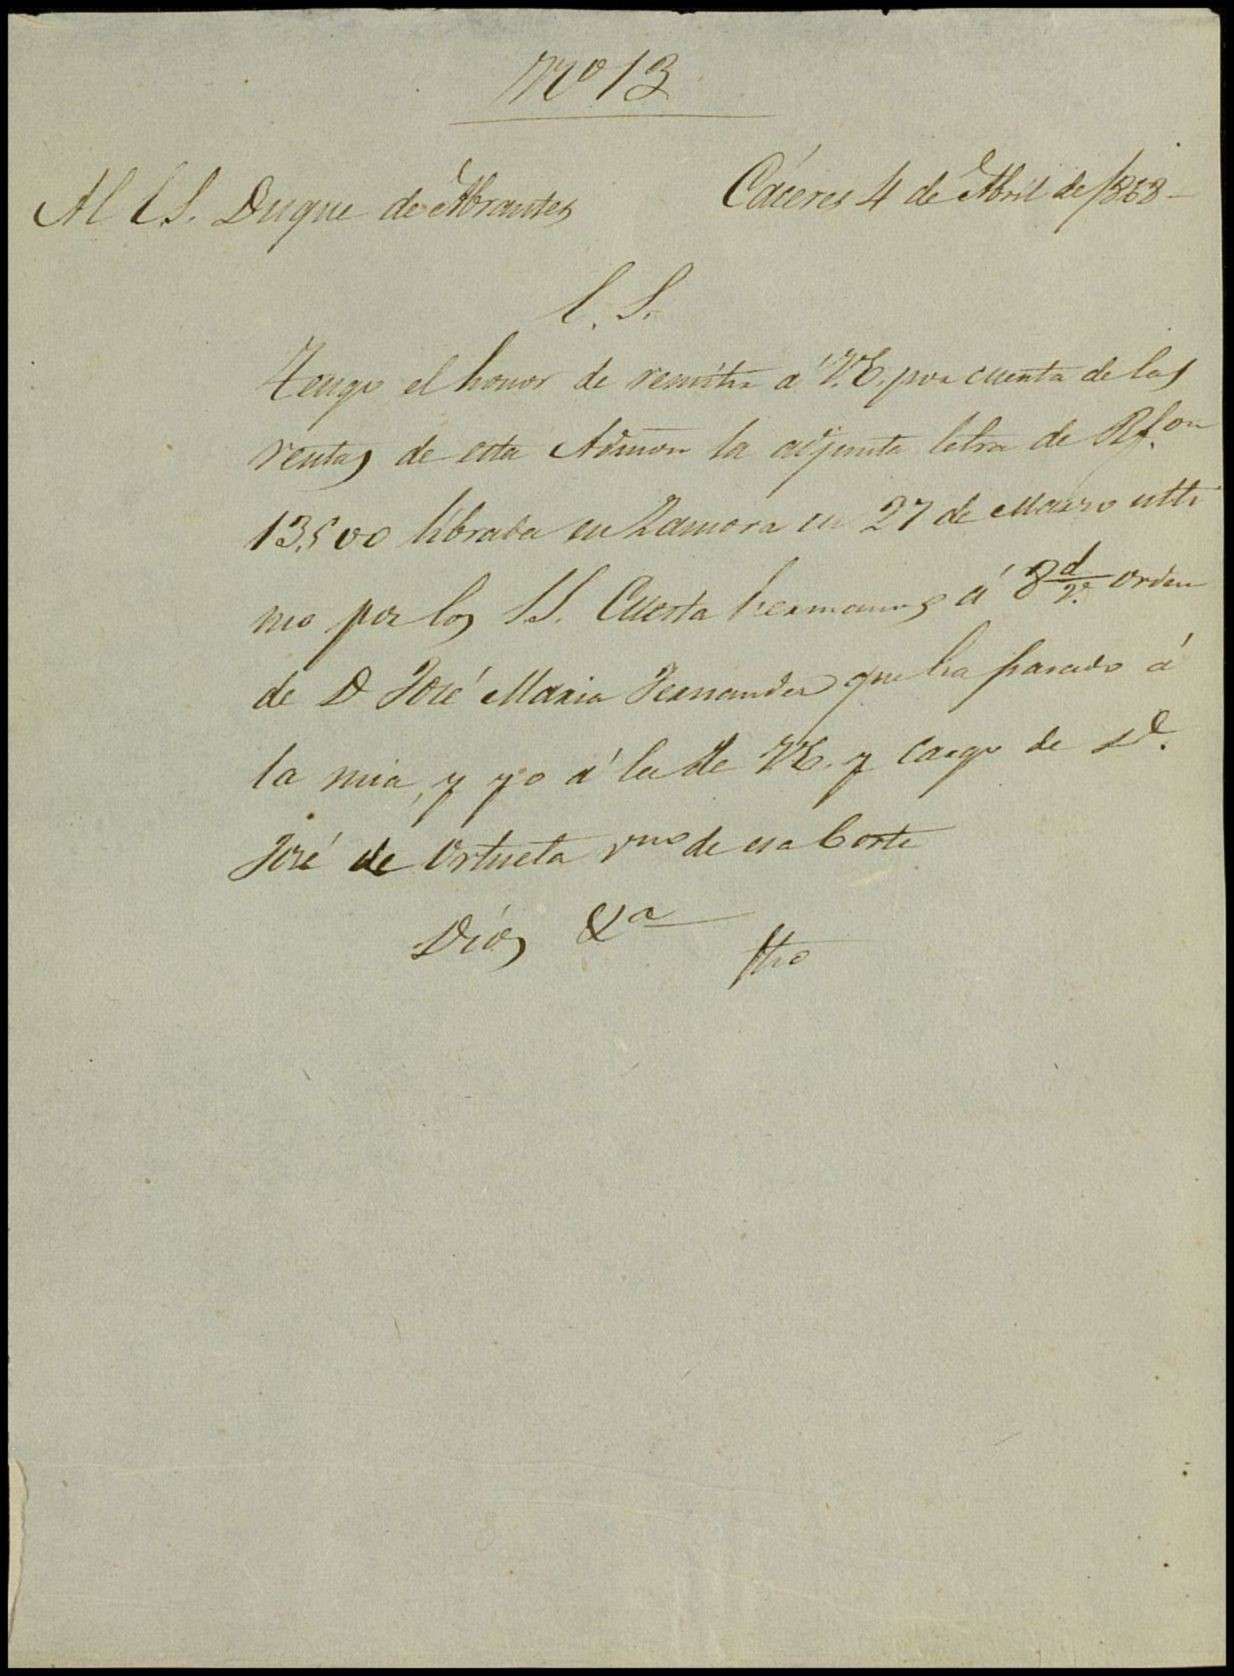 Nº 13
Al E. S. Duque de Abrantes
Cáceres 4 de Abril de 1868 -
E. S.
Tengo el honor de remitir á V.E. por cuenta de las
rentas de esta Admon la adjunta letra de R.s.on
13,500 librada en Zamora en 27 de Marzo ulti
mo por los SS. Cuesta hermanos á 8 d/v. orden
de D José Maria Fernandez que ha pasado á
la mia, y yo á la de VE. y cargo de
José de Ortueta vno de esa Corte
Dios &a